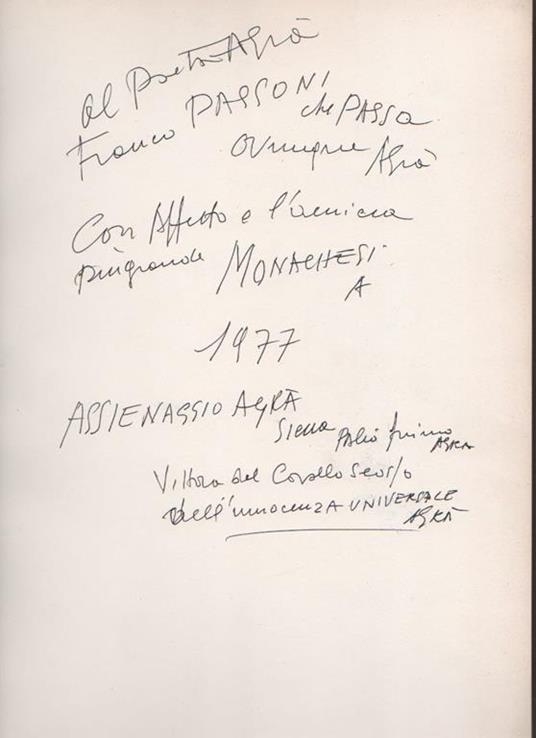 al Poeta Agrà
Franco PASSONI
che PASSA
ovunque Agrà
Con Affetto e l'amicizia
più grande MONACHESI
A
1977
ASSIENAGGIO AGRÀ
Siena Palio primo
AGRA
Vittoria del Cavallo Scosso
dell'innocenza UNIVERSALE
AGRÀ